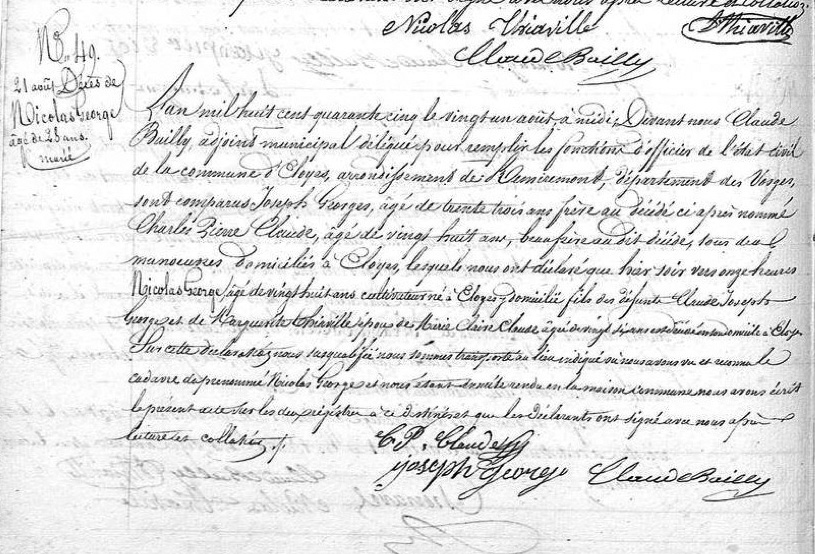 Nicolas Thiaville
Thiaville
Claude Bailly
No. 49.
21 août Décès de
Nicolas George
âgé de 28 ans.
marié
L'an mil huit cent quarante cinq le vingt un août, à midi, Devant nous Claude
Bailly, adjoint municipal délégué pour remplir les fonctions d'officier de l'état civil
de la commune d'Eloyes, arrondissement de Remiremont, département des Vosges,
sont comparus Joseph Georges, âgé de trente trois ans frère au décédé ci après nommé
Charles Pierre Claude, âgé de vingt huit ans, beaufrère au dit décédé, tous deux
manoeuvres domiciliés à Eloyes, lesquels nous ont déclaré que hier soir vers onze heures
Nicolas George âgé de vingt huit ans cultivateur né à Eloyes y domicilié fils des défunts Claude Joseph
George et de Marguerite Thiaville époux de Marie Claire Claude âgée de vingt six ans est décédé en son domicile à Eloyes
Sur cette déclaration, nous susqualifié nous sommes transporté au lieu indiqué où nous avons vu et reconnu le
cadavre du prénommé Nicolas George et nous étant ensuite rendu en la maison commune nous avons écrit
le présent acte sur les deux registres à ce destinés et que les déclarants ont signé avec nous après
lecture et collation ./.
C. P. Claude
Joseph George
Claude Bailly